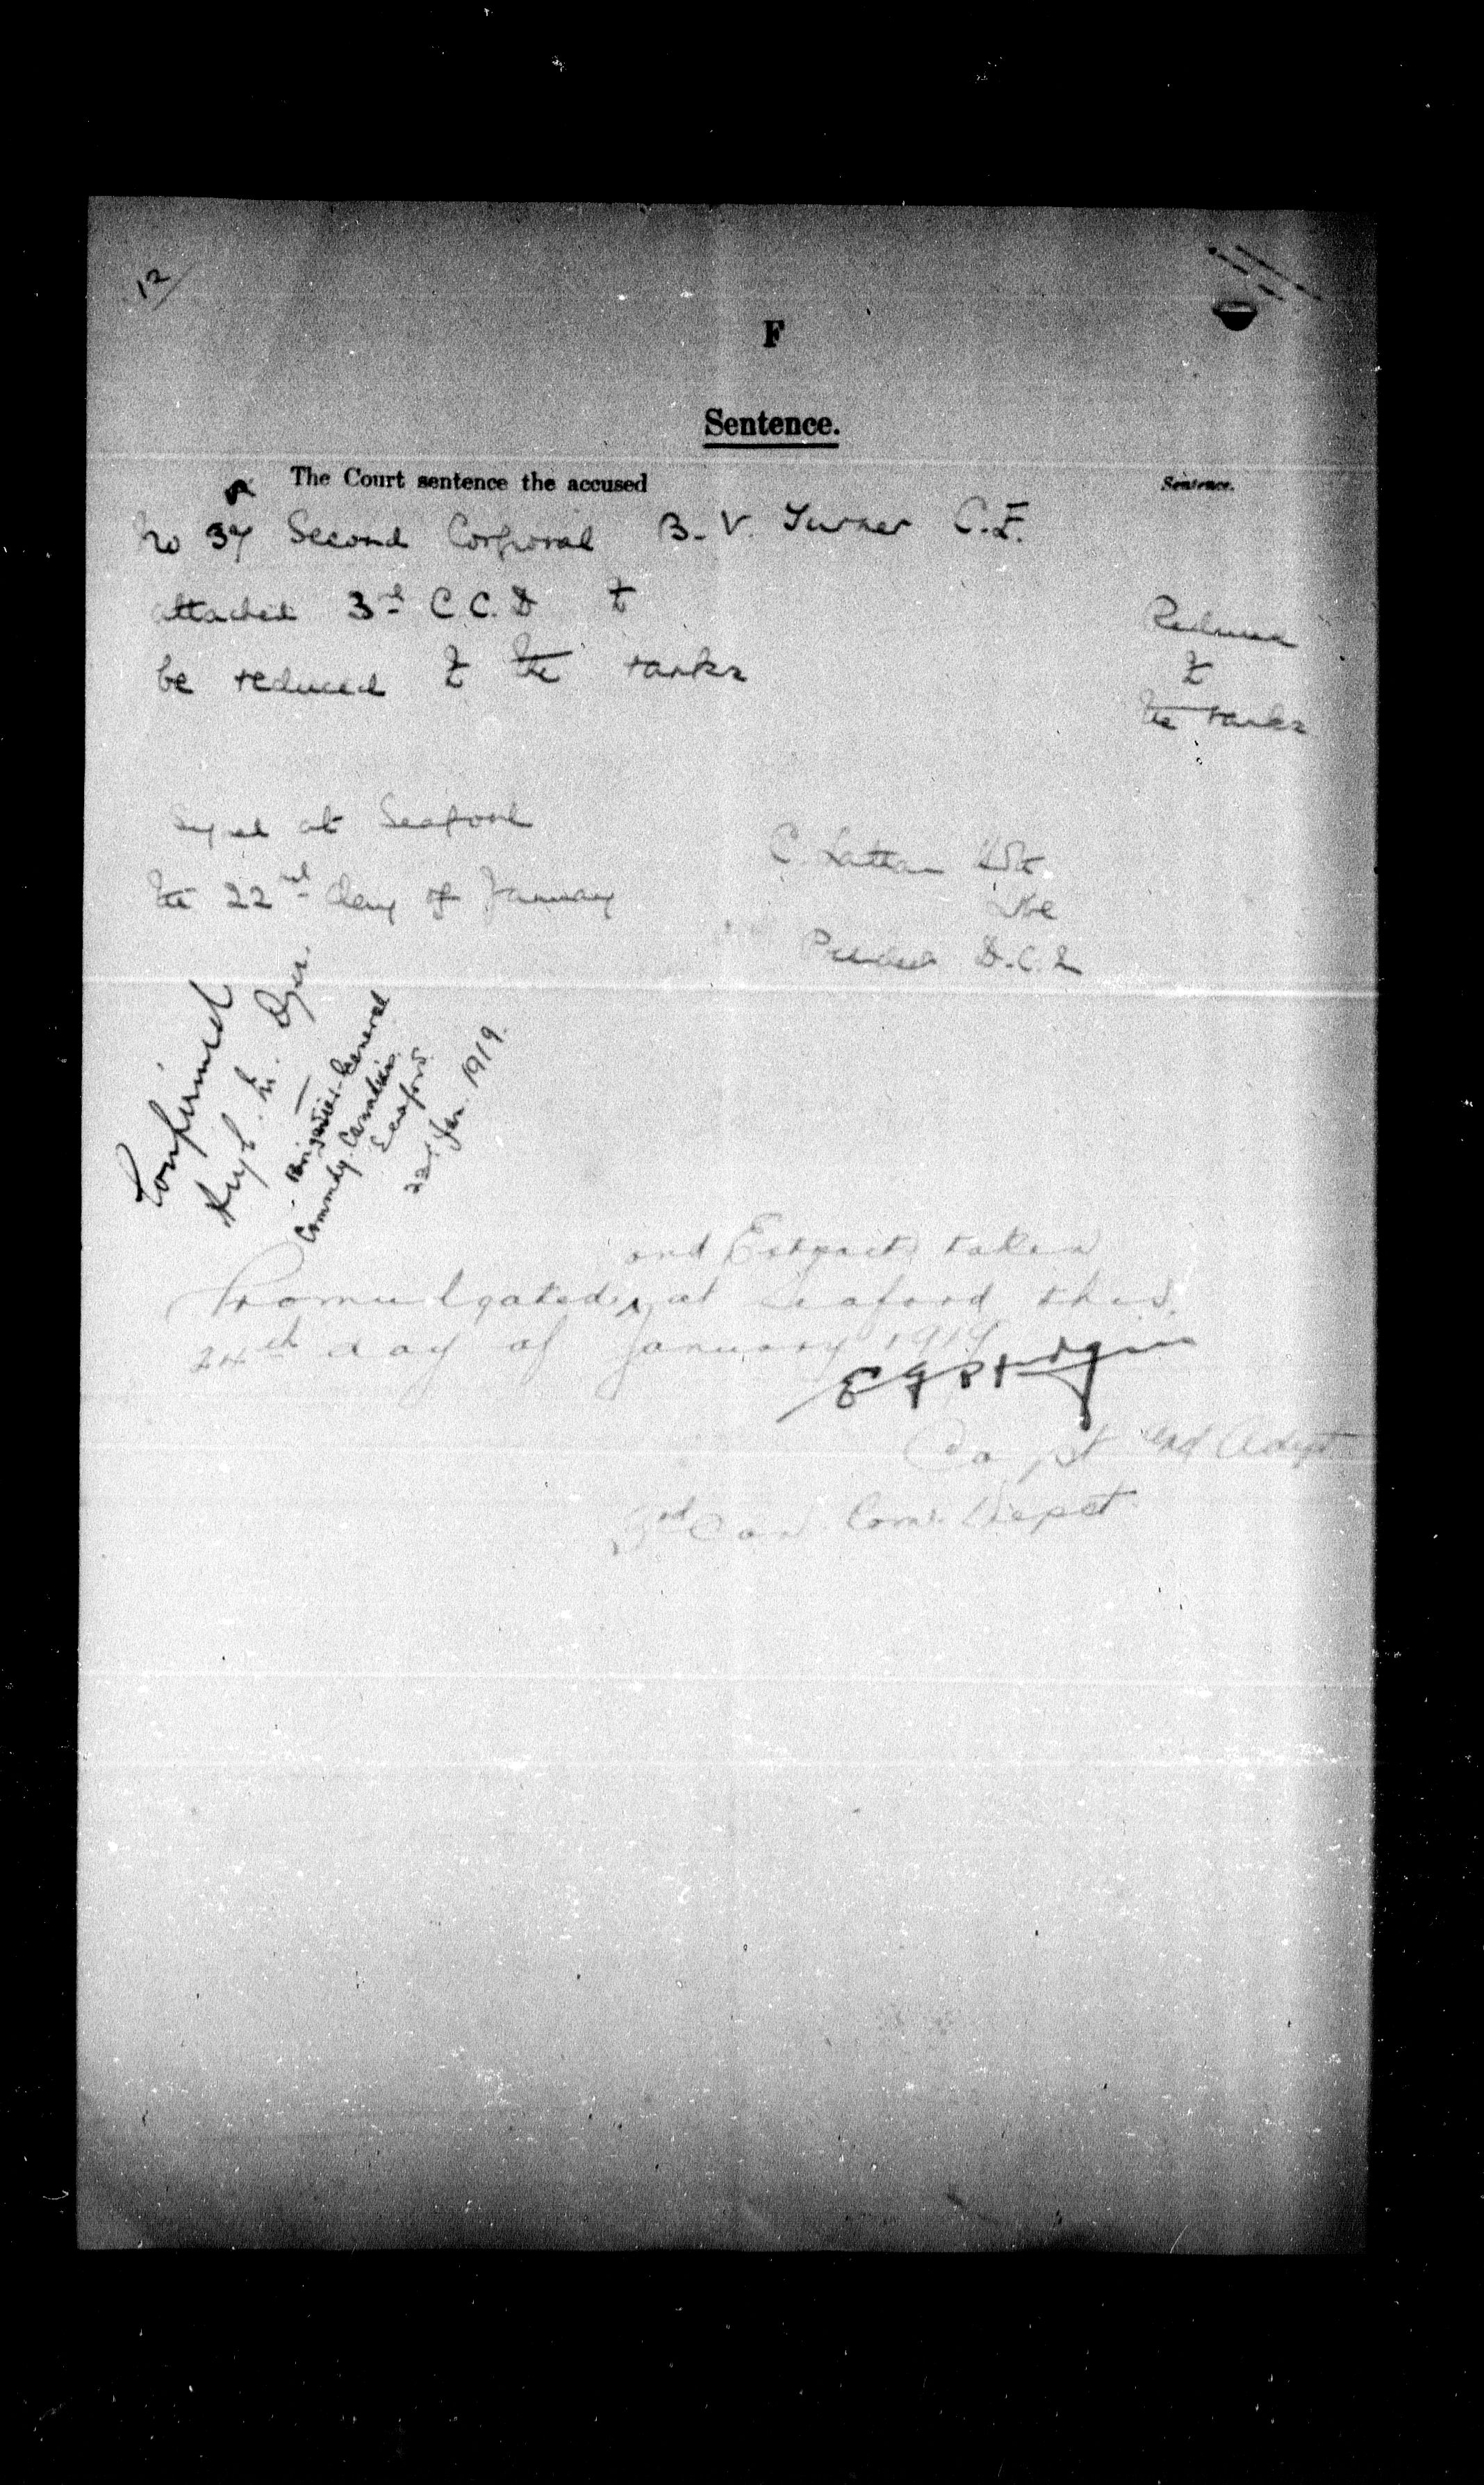 12
F
Sentence.
The Court sentence the accused
Sentence.
No 37 Second Corporal B. V. Turner C.E.
attached 3rd C.C.D to
be reduced to the ranks
Reduced
to
the ranks
Signed at Seaford
the 22nd day of January
C.
President D.C.M
Confirmed
Hugh M. Dyer
Brigadier-General
Commdg. Canadians
Seaford
22 Jan. 1919.
and Extracts taken
Promulgated at Seaford this
24th day of January 1919
Capt and Adjt
3rd Can. Con. Depot